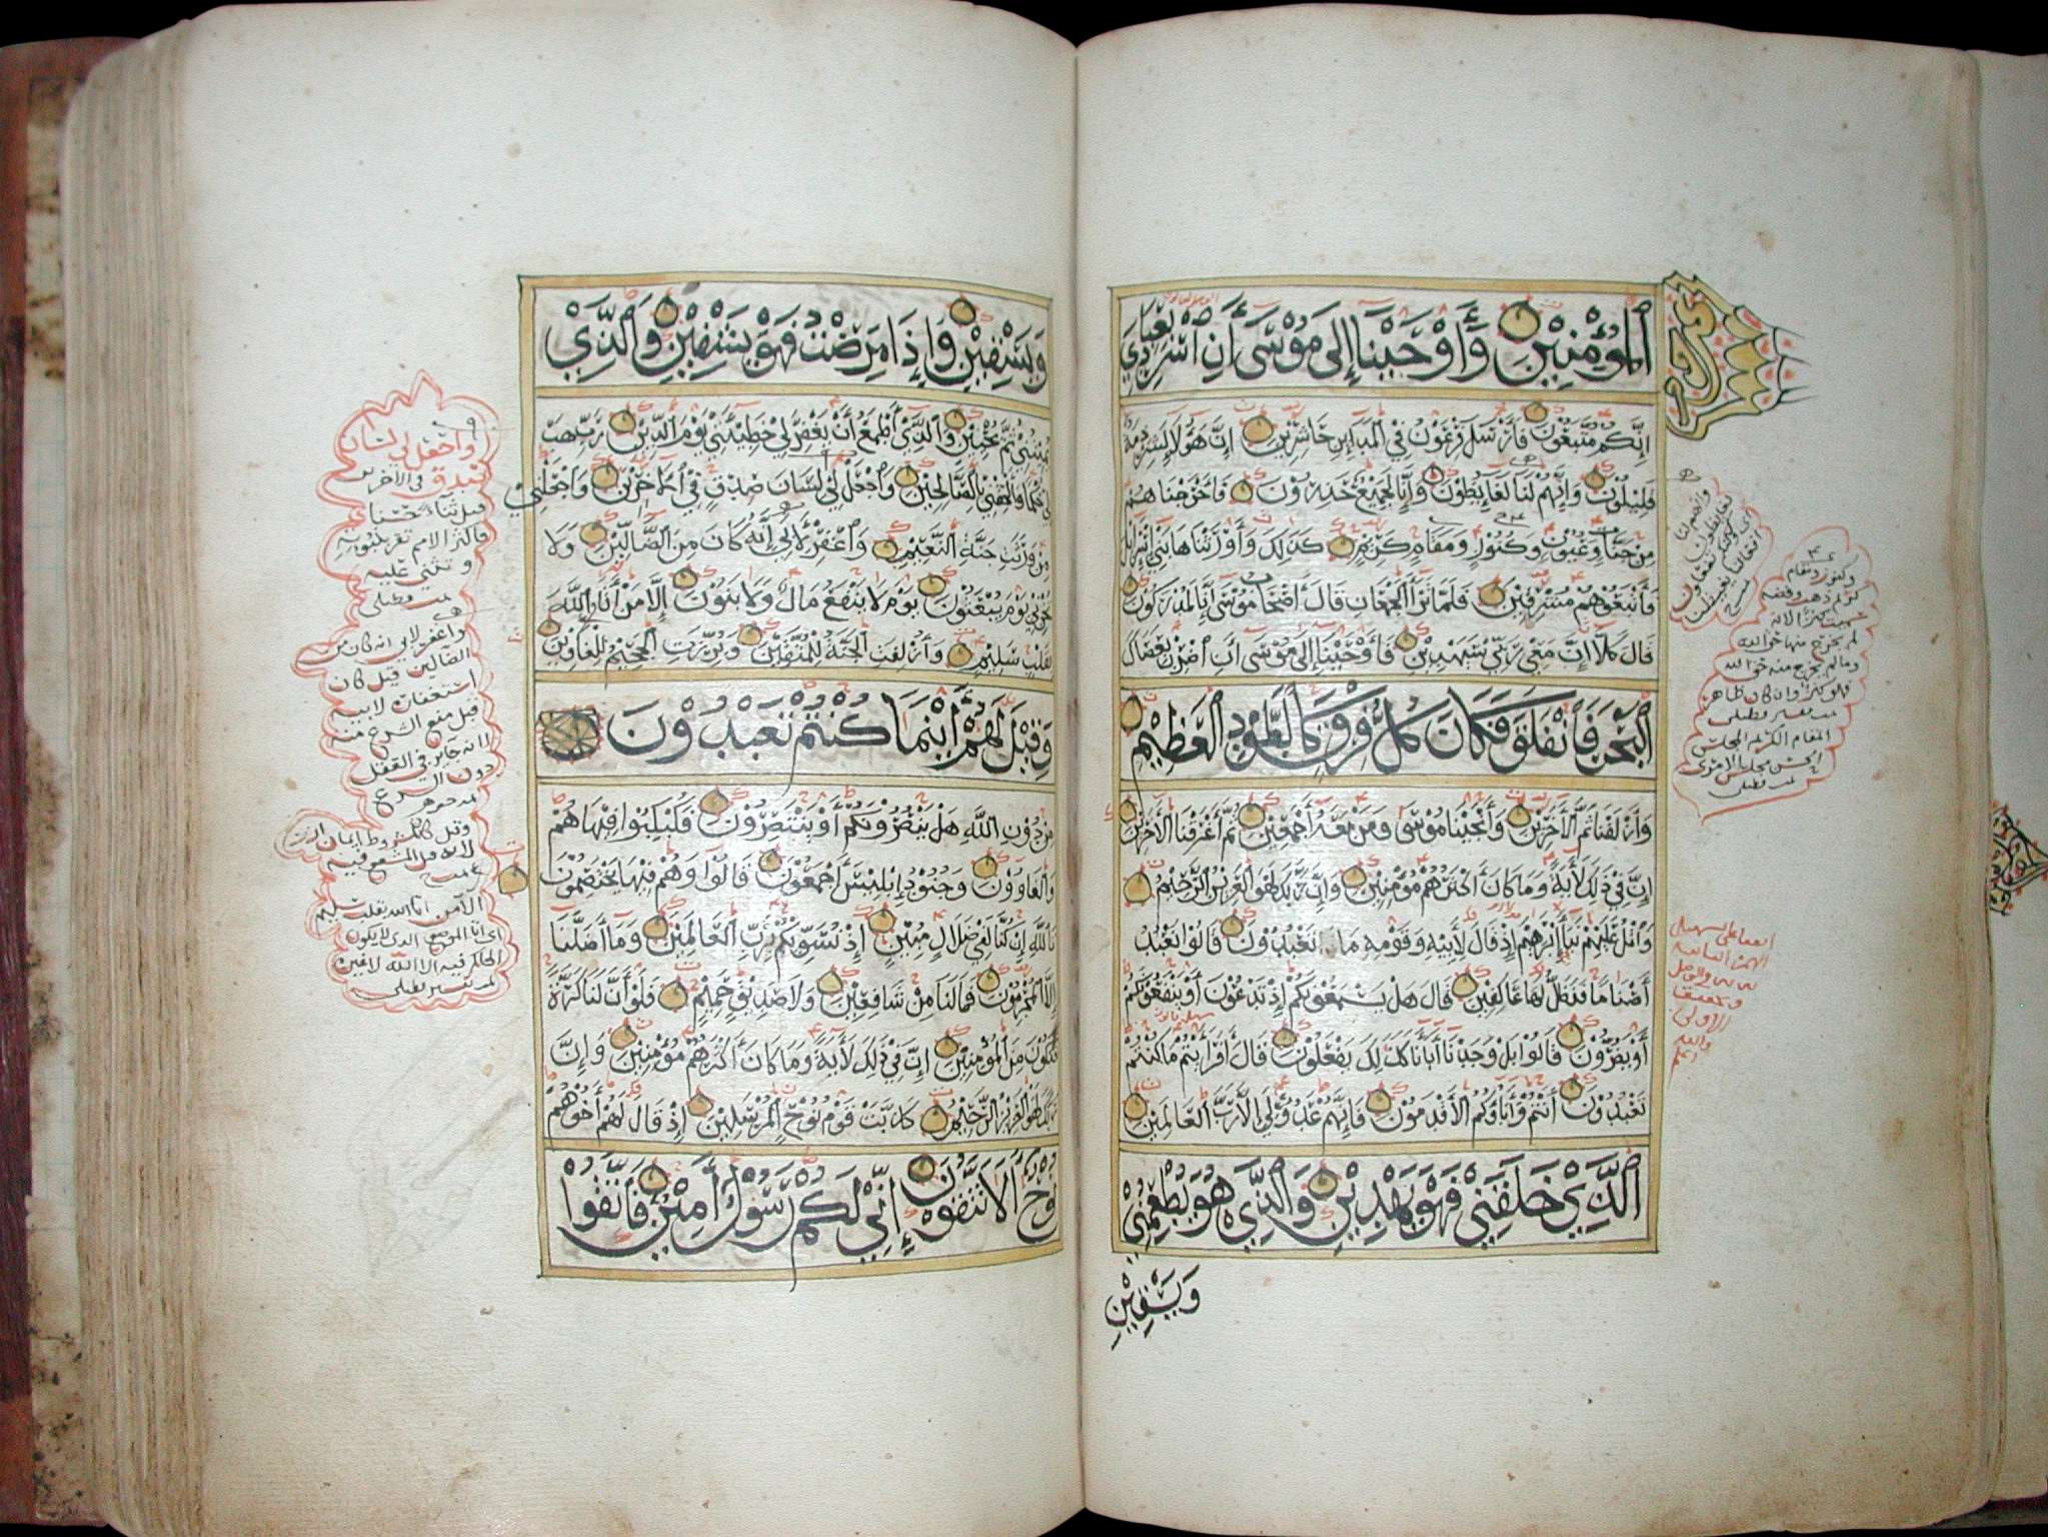 ٱلْمُؤْمِنِيْنَ وَأَوْحَيْنَا إِلَى مُوْسَى أَنِ اسْرِ بِعِبَادِيْ
إِنَّكُم مُّتَّبَعُوْنَ فَأَرْسَلَ فِرْعَوْنُ فِي الْمَدَايِنِ حَاشِرِيْنَ إِنَّ هَؤُلَاءِ لَشِرْذِمَةٌ
قَلِيْلُوْنَ وَإِنَّهُمْ لَنَا لَغَايِظُوْنَ وَإِنَّا لَجَمِيْعٌ حَذِرُوْنَ فَأَخْرَجْنَاهُمْ
مِنْ جَنَّاتٍ وَعُيُوْنٍ وَكُنُوْزٍ وَمَقَامٍ كَرِيْمٍ كَذَلِكَ وَأَوْرَثْنَاهَا بَنِيْ إِسْرَائِيْلَ
فَأَتْبَعُوْهُمْ مُشْرِقِيْنَ فَلَمَّا تَرَاءَ الْجَمْعَانِ قَالَ أَصْحَابُ مُوْسَى إِنَّا لَمُدْرَكُوْنَ
قَالَ كَلَّا إِنَّ مَعِيَ رَبِّيْ سَيَهْدِيْنِ فَأَوْحَيْنَا إِلَى مُوْسَى أَنِ اضْرِبْ بِعَصَاكَ
الْبَحْرَ فَانْفَلَقَ فَكَانَ كُلُّ فِرْقٍ كَالطَّوْدِ الْعَظِيْمِ
وَأَزْلَفْنَا ثَمَّ الْآخَرِيْنَ وَأَنْجَيْنَا مُوْسَى وَمَنْ مَعَهُ أَجْمَعِيْنَ ثُمَّ أَغْرَقْنَا الْآخَرِيْنَ
إِنَّ فِيْ ذَلِكَ لَأَيَةً وَمَا كَانَ أَكْثَرُهُمْ مُؤْمِنِيْنَ وَإِنَّ رَبَّكَ لَهُوَ الْعَزِيْزُ الرَّحِيْمُ
وَاتْلُ عَلَيْهِمْ نَبَأَ إِبْرَاهِيْمَ إِذْ قَالَ لِأَبِيْهِ وَقَوْمِهِ مَا تَعْبُدُوْنَ قَالُوْا نَعْبُدُ
أَصْنَامًا فَنَظَلُّ لَهَا عَاكِفِيْنَ قَالَ هَلْ يَسْمَعُوْنَكُمْ إِذْ تَدْعُوْنَ أَوْ يَنْفَعُوْنَكُمْ
أَوْ يَضُرُّوْنَ قَالُوْا بَلْ وَجَدْنَا أَبَاءَنَا كَذَلِكَ يَفْعَلُوْنَ قَالَ أَفَرَأَيْتُمْ مَا كُنْتُمْ
تَعْبُدُوْنَ أَنْتُمْ وَأَبَاؤُكُمُ الْأَقْدَمُوْنَ فَإِنَّهُمْ عَدُوٌّ لِيْ إِلَّا رَبَّ الْعَالَمِيْنَ
الَّذِيْ خَلَقَنِيْ فَهُوَ يَهْدِيْنِ وَالَّذِيْ هُوَ يُطْعِمُنِيْ
وَيَسْقِيْنِ
وَيَسْقِيْنِ وَإِذَا مَرِضْتُ فَهُوَ يَشْفِيْنِ وَالَّذِيْ
يُمِيْتُنِيْ ثُمَّ يُحْيِيْنِ وَالَّذِيْ أَطْمَعُ أَنْ يَغْفِرَ لِيْ خَطِيْئَتِيْ يَوْمَ الدِّيْنِ رَبِّ هَبْ
لِيْ حُكْمًا وَأَلْحِقْنِيْ بِالصَّالِحِيْنَ وَاجْعَلْ لِيْ لِسَانَ صِدْقٍ فِي الْآخِرِيْنَ وَاجْعَلْنِيْ
مِنْ وَرَثَةِ جَنَّةِ النَّعِيْمِ وَاغْفِرْ لِأَبِيْ إِنَّهُ كَانَ مِنَ الضَّالِّيْنَ وَلَا
تُخْزِنِيْ يَوْمَ يُبْعَثُوْنَ يَوْمَ لَا يَنْفَعُ مَالٌ وَلَا بَنُوْنَ إِلَّا مَنْ أَتَى اللَّهَ
بِقَلْبٍ سَلِيْمٍ وَأُزْلِفَتِ الْجَنَّةُ لِلْمُتَّقِيْنَ وَبُرِّزَتِ الْجَحِيْمُ لِلْغَاوِيْنَ
وَقِيْلَ لَهُمْ أَيْنَمَا كُنْتُمْ تَعْبُدُوْنَ
مِنْ دُوْنِ اللَّهِ هَلْ يَنْصُرُوْنَكُمْ أَوْ يَنْتَصِرُوْنَ فَكُبْكِبُوْا فِيْهَا هُمْ
وَالْغَاوُوْنَ وَجُنُوْدُ إِبْلِيْسَ أَجْمَعُوْنَ قَالُوْا وَهُمْ فِيْهَا يَخْتَصِمُوْنَ
تَاللَّهِ إِنْ كُنَّا لَفِيْ ضَلَالٍ مُبِيْنٍ إِذْ نُسَوِّيْكُمْ بِرَبِّ الْعَالَمِيْنَ وَمَا أَضَلَّنَا
إِلَّا الْمُجْرِمُوْنَ فَمَا لَنَا مِنْ شَافِعِيْنَ وَلَا صَدِيْقٍ حَمِيْمٍ فَلَوْ أَنَّ لَنَا كَرَّةً
فَنَكُوْنَ مِنَ الْمُؤْمِنِيْنَ إِنَّ فِيْ ذَلِكَ لَأَيَةً وَمَا كَانَ أَكْثَرُهُمْ مُؤْمِنِيْنَ وَإِنَّ
رَبَّكَ لَهُوَ الْعَزِيْزُ الرَّحِيْمُ كَذَّبَتْ قَوْمُ نُوْحٍ الْمُرْسَلِيْنَ إِذْ قَالَ لَهُمْ أَخُوْهُمْ
نُوْحٌ أَلَا تَتَّقُوْنَ إِنِّيْ لَكُمْ رَسُوْلٌ أَمِيْنٌ فَاتَّقُوْا
واجعل لي لسان
صدق في الآخرين
قيل ثناء حسنا
وتثني عليه
واغفر لابي انه كان من
الضالين قيل كان
استغفاره لابيه
قبل منع الشرع منه
لانه جايز في العقل
دون الشرع
الا من اتا الله بقلب سليم
وكنوز ومقام
كريم ذهب وفضه